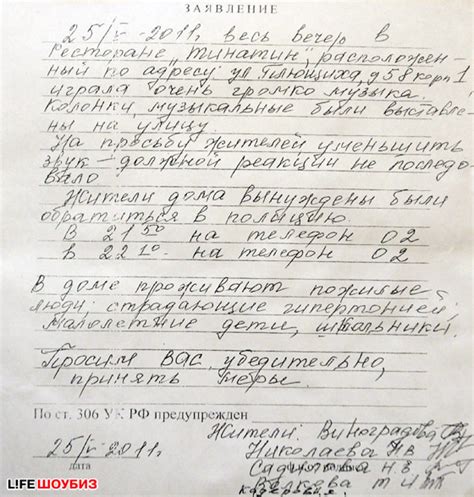 ЗАЯВЛЕНИЕ
25/V-2011г. весь вечер в
ресторане "Тинатин", расположен-
ный по адресу: ул. Плющиха, д 58 корп 1
играла очень громко музыка.
Колонки, музыкальные были выставле-
ны на улицу.
На просьбу жителей уменьшить
звук – должной реакции не последо-
вало
Жители дома вынуждены были
обратиться в полицию.
В 21 50 на телефон 02
в 22 10 на телефон 02
В доме проживают пожилые
люди, страдающие гипертонией,
малолетние дети, школьники.
Просим Вас, убедительно,
принять меры.
По ст. 306 УК РФ предупрежден
Жители: Виноградова
25/V-2011г. Николаева НВ
дата
Н.В.
Волкова Т Н
LIFE ШОУБИЗ